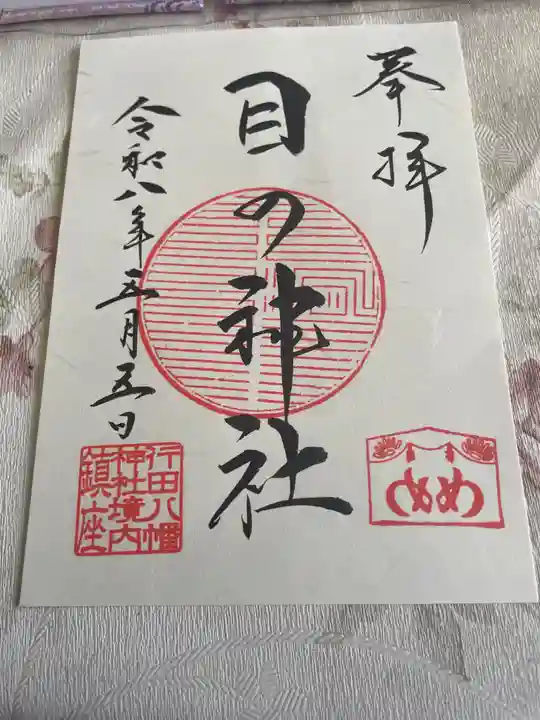 奉拝
目の神社
令和八年五月五日
行田八幡
神社境内
鎮座
めめ